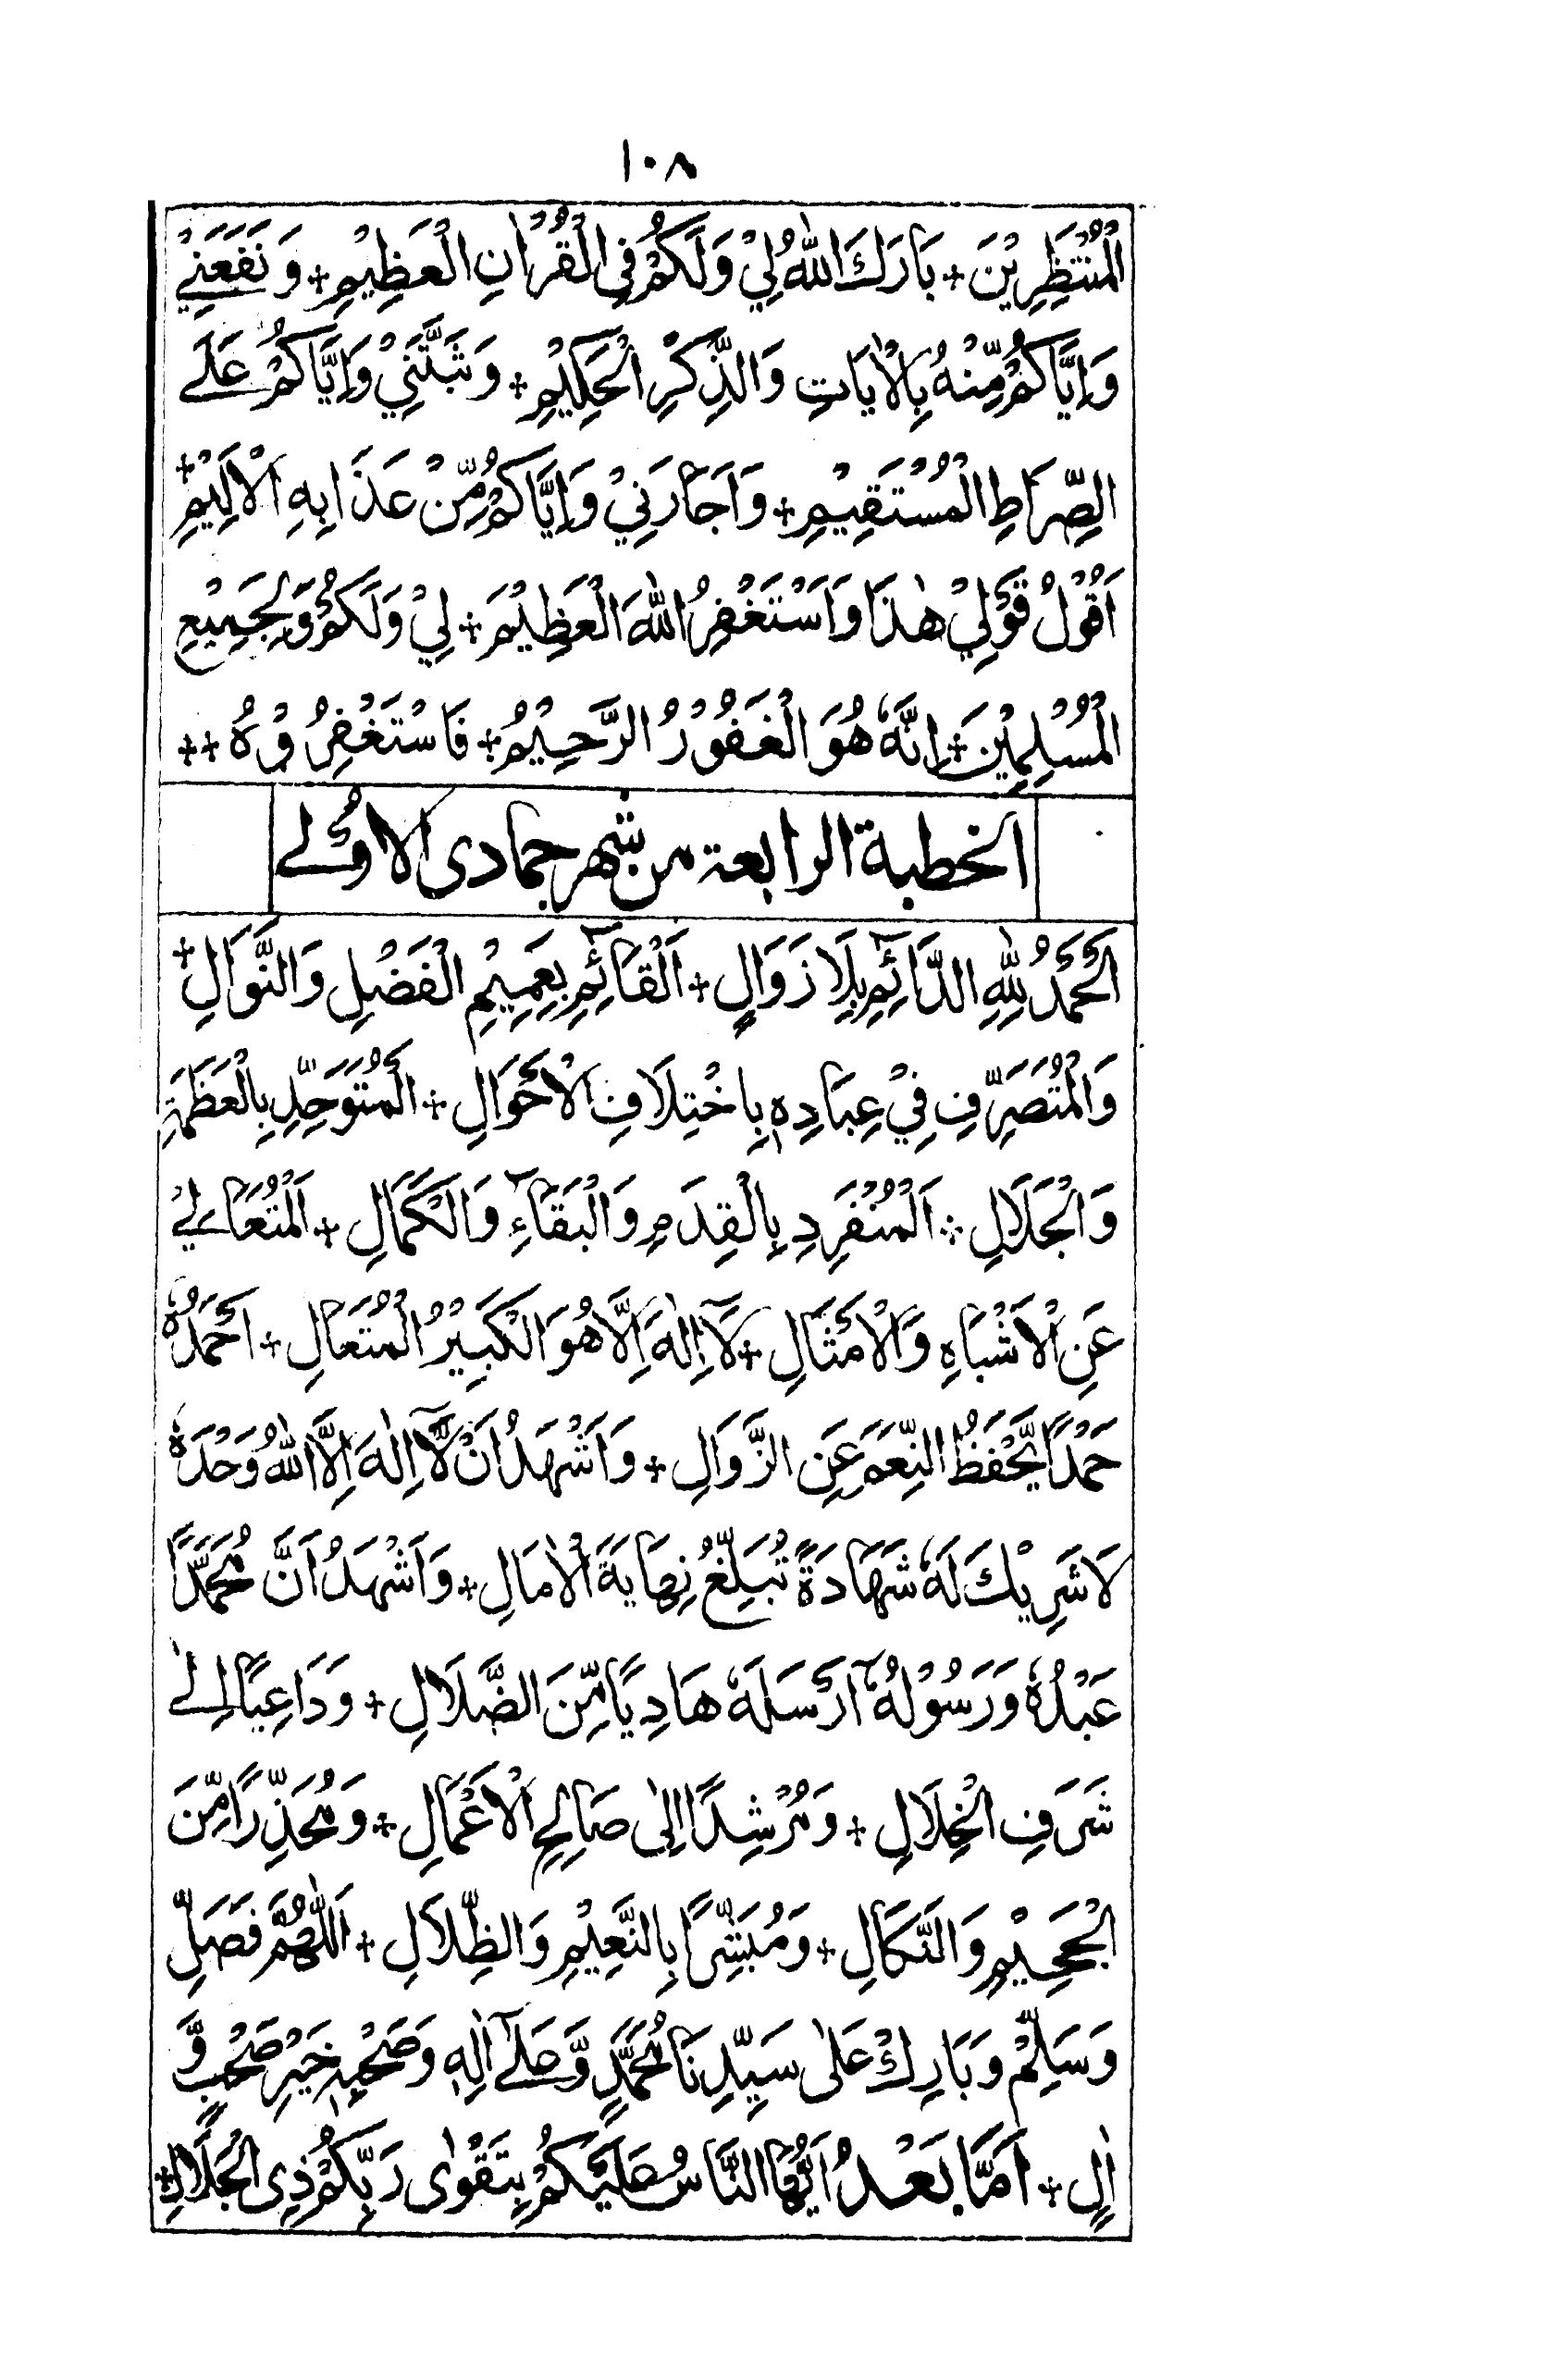 ١٠٨
الْمُنْتَظِرِيْنَ + بَارَكَ اللّٰهُ لِيْ وَلَكُمْ فِي الْقُرْاٰنِ الْعَظِيْمِ + وَنَفَعَنِيْ
وَاِيَّاكُمْ مِّنْهُ بِالْاٰيَاتِ وَالذِّكْرِ الْحَكِيْمِ + وَثَبَّتَنِيْ وَاِيَّاكُمْ عَلَے
الصِّرَاطِ الْمُسْتَقِيْمِ + وَاَجَارَنِيْ وَاِيَّاكُمْ مِّنْ عَذَابِهِ الْاَلِيْمِ +
اَقُوْلُ قَوْلِيْ هٰذَا وَاَسْتَغْفِرُ اللّٰهَ الْعَظِيْمَ + لِيْ وَلَكُمْ وَلِجَمِيْعِ
الْمُسْلِمِيْنَ + اِنَّهٗ هُوَ الْغَفُوْرُ الرَّحِيْمُ + فَاسْتَغْفِرُوْهُ ++
الخطبة الرابعة من شهر جمادى الاُولے
اَلْحَمْدُ لِلّٰهِ الدَّآئِمِ بِلَا زَوَالٍ + اَلْقَآئِمِ بِعَمِيْمِ الْفَضْلِ وَالنَّوَالِ +
وَالْمُتَصَرِّفِ فِيْ عِبَادِهٖ بِاخْتِلَافِ الْاَحْوَالِ + اَلْمُتَوَحِّدِ بِالْعَظَمَةِ
وَالْجَلَالِ + اَلْمُنْفَرِدِ بِالْقِدَمِ وَالْبَقَآءِ وَالْكَمَالِ + اَلْمُتَعَالِيْ
عَنِ الْاَشْبَاهِ وَالْاَمْثَالِ + لَآ اِلٰهَ اِلَّا هُوَ الْكَبِيْرُ الْمُتَعَالِ + اَحْمَدُهٗ
حَمْدًا يَّحْفَظُ النِّعَمَ عَنِ الزَّوَالِ + وَاَشْهَدُ اَنْ لَّآ اِلٰهَ اِلَّا اللّٰهُ وَحْدَهٗ
لَا شَرِيْكَ لَهٗ شَهَادَةً تُبَلِّغُ نِهَايَةَ الْاٰمَالِ + وَاَشْهَدُ اَنَّ مُحَمَّدًا
عَبْدُهٗ وَرَسُوْلُهٗٓ اَرْسَلَهٗ هَادِيًا مِّنَ الضَّلَالِ + وَدَاعِيًا اِلٰے
شَرَفِ الْخِلَالِ + وَمُرْشِدًا اِلٰى صَالِحِ الْاَعْمَالِ + وَمُحَذِّرًا مِّنَ
الْجَحِيْمِ وَالنَّكَالِ + وَمُبَشِّرًا بِالنَّعِيْمِ وَالظِّلَالِ + اَللّٰهُمَّ فَصَلِّ
وَسَلِّمْ وَبَارِكْ عَلٰى سَيِّدِنَا مُحَمَّدٍ وَّعَلٰٓے اٰلِهٖ وَصَحْبِهٖ خَيْرِ صَحْبٍ وَّ
اٰلٍ + اَمَّا بَعْدُ اَيُّهَا النَّاسُ عَلَيْكُمْ بِتَقْوٰى رَبِّكُمْ ذِى الْجَلَالِ +